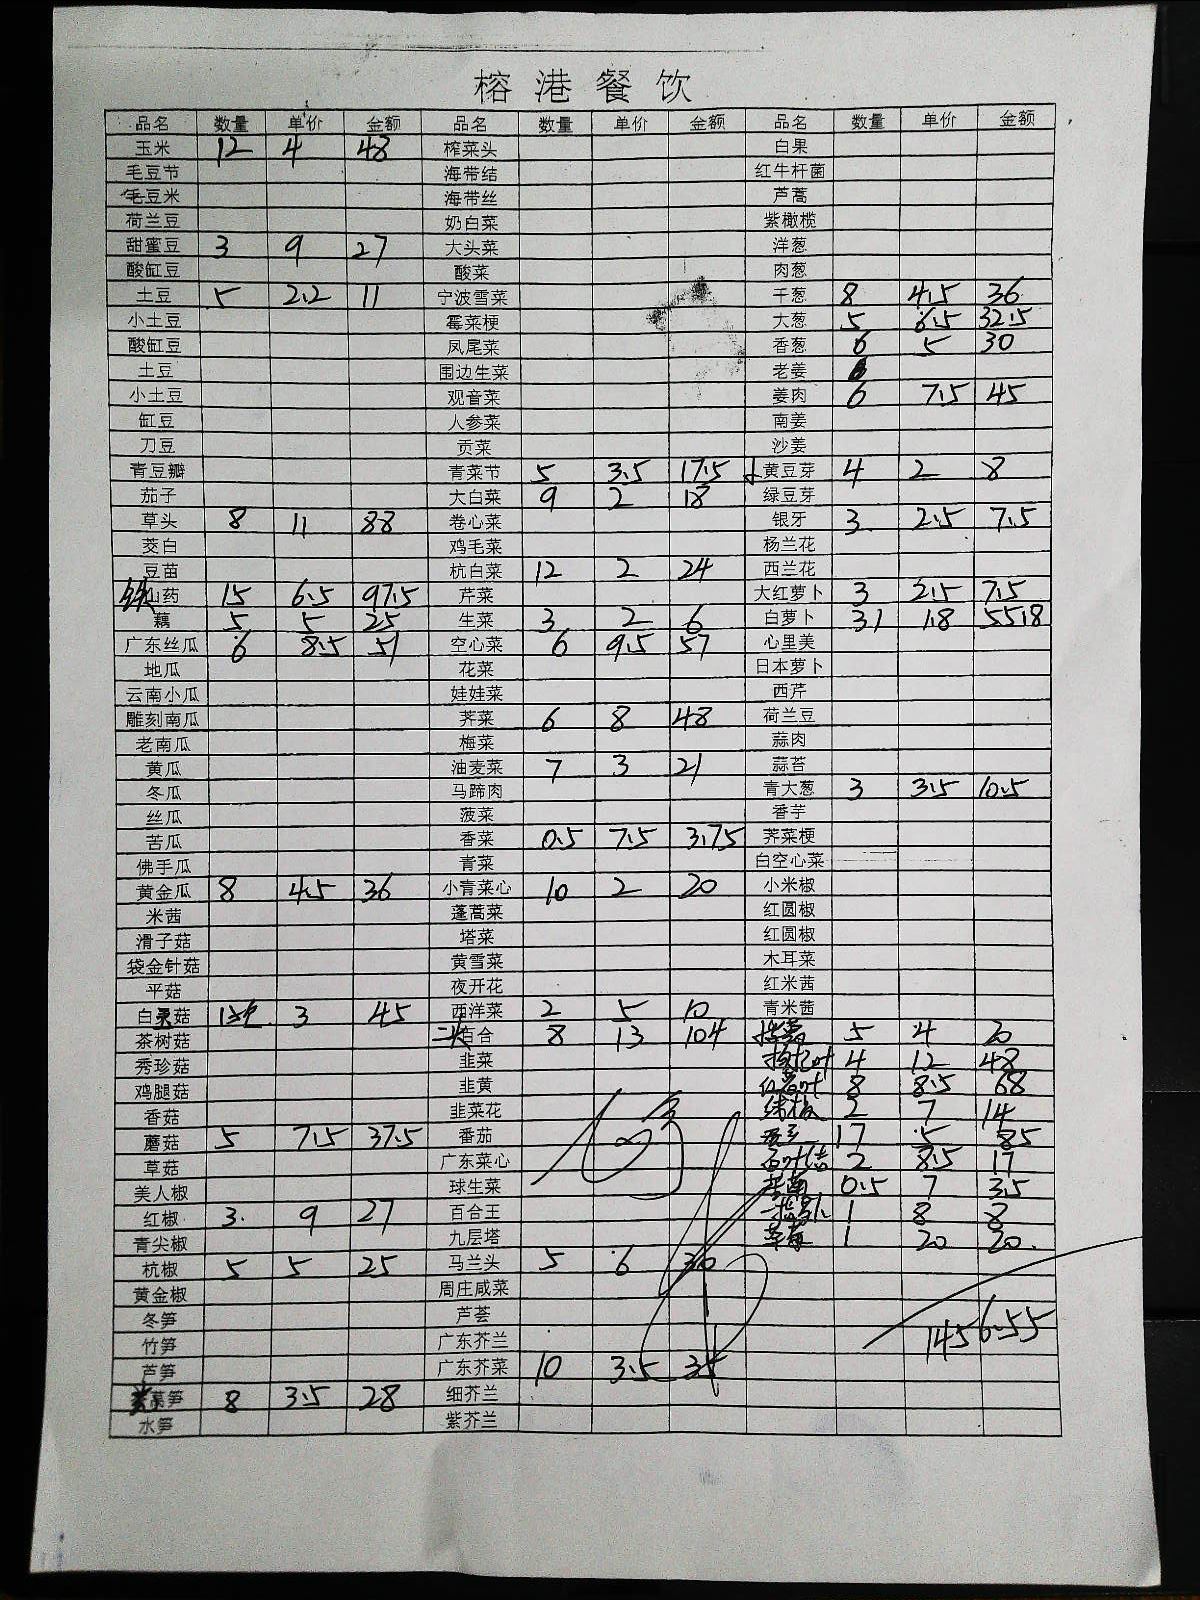 榕港餐饮
品名 数量 单价 金额 品名 数量 单价 金额 品名 数量 单价 金额
玉米 12 4 48 榨菜头 白果
毛豆节 海带结 红牛杆菌
毛豆米 海带丝 芦蒿
荷兰豆 奶白菜 紫橄榄
甜蜜豆 3 9 27 大头菜 洋葱
酸缸豆 酸菜 肉葱
土豆 5 2.2 11 宁波雪菜 干葱 8 4.5 36
小土豆 霉菜梗 大葱 5 6.5 32.5
酸缸豆 凤尾菜 香葱 6 5 30
土豆 围边生菜 老姜
小土豆 观音菜 姜肉 6 7.5 45
缸豆 人参菜 南姜
刀豆 贡菜 沙姜
青豆瓣 青菜节 5 3.5 17.5 黄豆芽 4 2 8
茄子 大白菜 9 2 18 绿豆芽
草头 8 11 88 卷心菜 银牙 3 2.5 7.5
茭白 鸡毛菜 杨兰花
豆苗 杭白菜 12 2 24 西兰花
铁山药 15 6.5 97.5 芹菜 大红萝卜 3 2.5 7.5
藕 5 5 25 生菜 3 2 6 白萝卜 31 1.8 55.8
广东丝瓜 6 8.5 51 空心菜 6 9.5 57 心里美
地瓜 花菜 日本萝卜
云南小瓜 娃娃菜 西芹
雕刻南瓜 荠菜 6 8 48 荷兰豆
老南瓜 梅菜 蒜肉
黄瓜 油麦菜 7 3 21 蒜苔
冬瓜 马蹄肉 青大葱 3 3.5 10.5
丝瓜 菠菜 香芋
苦瓜 香菜 0.5 7.5 3.75 荠菜梗
佛手瓜 青菜 白空心菜
黄金瓜 8 4.5 36 小青菜心 10 2 20 小米椒
米茜 蓬蒿菜 红圆椒
滑子菇 塔菜 红圆椒
袋金针菇 黄雪菜 木耳菜
平菇 夜开花 红米茜
白灵菇 3 45 西洋菜 2 5 10 青米茜
茶树菇 百合 8 13 104 5 4 20
秀珍菇 韭菜 枸杞叶 4 12 48
鸡腿菇 韭黄 红薯叶 8 8.5 68
香菇 韭菜花 2 7 14
蘑菇 5 7.5 37.5 番茄 17 5 85
草菇 广东菜心 百叶结 2 8.5 17
美人椒 球生菜 0.5 7 3.5
红椒 3 9 27 百合王 1 8 8
青尖椒 九层塔 草莓 1 20 20
杭椒 5 5 25 马兰头 5 6 30
黄金椒 周庄咸菜
冬笋 芦荟
竹笋 广东芥兰 1456.55
芦笋 广东芥菜 10 3.5 35
莴笋 8 3.5 28 细芥兰
水笋 紫芥兰